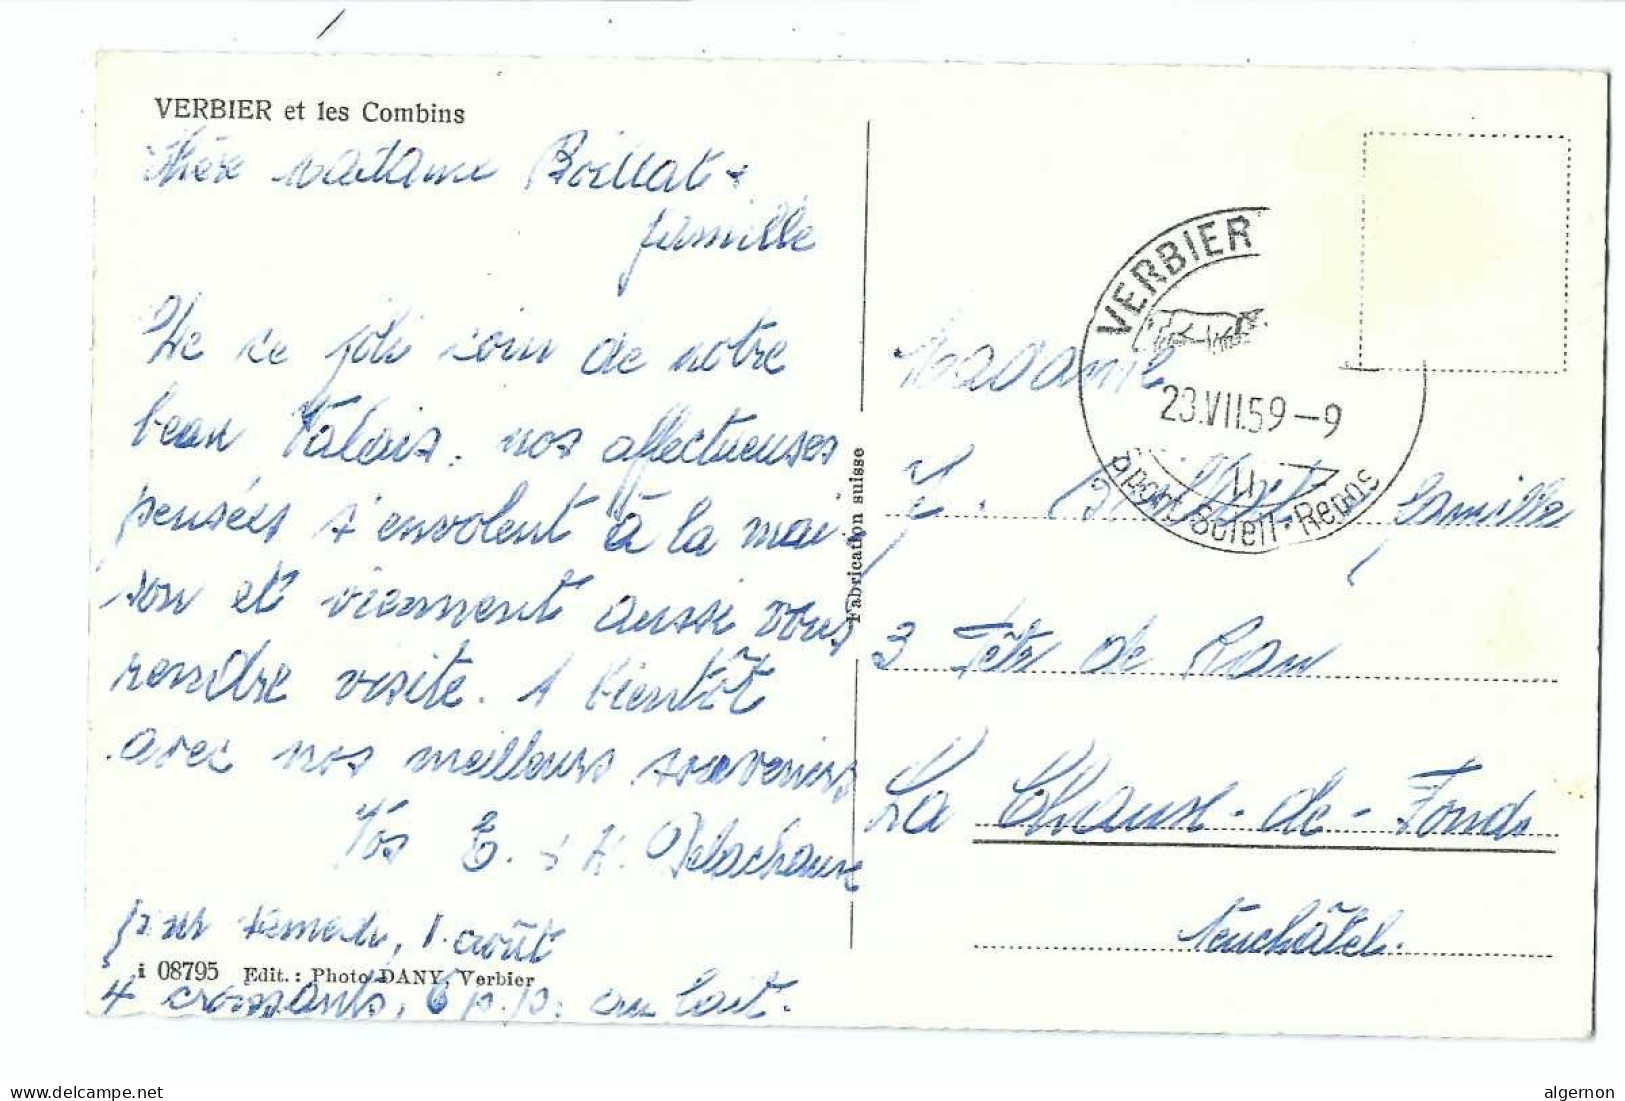 VERBIER et les Combins
Chère Madame Boillat +
famille
De ce joli coin de notre
beau Valais, nos affectueuses
pensées s'envolent à la mai-
son et viennent aussi vous
rendre visite. A bientôt
avec nos meilleurs souvenirs
Vos E. & H. Delachaux
pour samedi, 1. août
i 08795 Edit.: Photo DANY, Verbier
4 croissants, 6 p.p. au lait.
Fabrication suisse
VERBIER
23.VII.59-9
Sport-Soleil-Repos
Madame
Boillat famille
3 Tête de Ran
La Chaux-de-Fonds
Neuchâtel.
www.delcampe.net
algernon